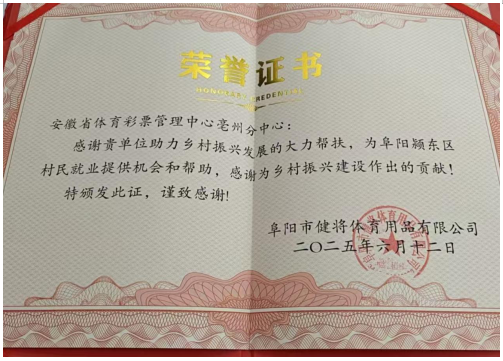 荣誉证书
HONORARY CREDENTIAL
安徽省体育彩票管理中心亳州分中心：
感谢贵单位助力乡村振兴发展的大力帮扶，为阜阳颍东区
村民就业提供机会和帮助，感谢为乡村振兴建设作出的贡献！
特颁发此证，谨致感谢！
阜阳市健将体育用品有限公司
二〇二五年六月十二日